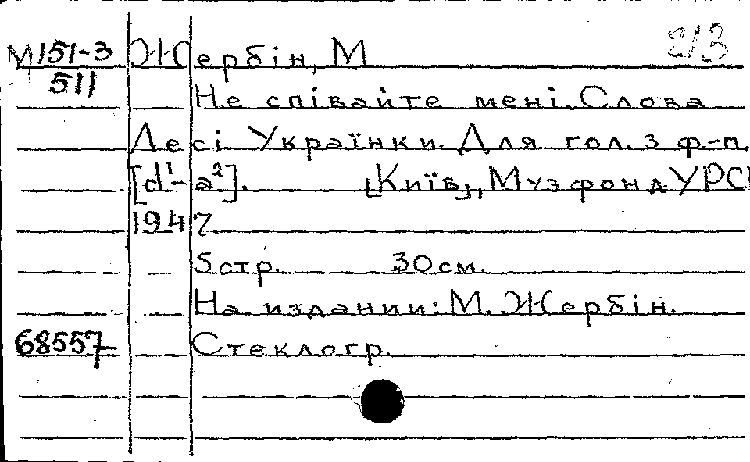 М151-3 Жербін, М 213
511
Не співайте мені. Слова
Лесі Українки. Для гол. з ф-п.
[d¹-a²]. [Київ], Музфонд УРСР
1947
5 стр. 30 см.
На издании: М. Жербін.
68557 Стеклогр.